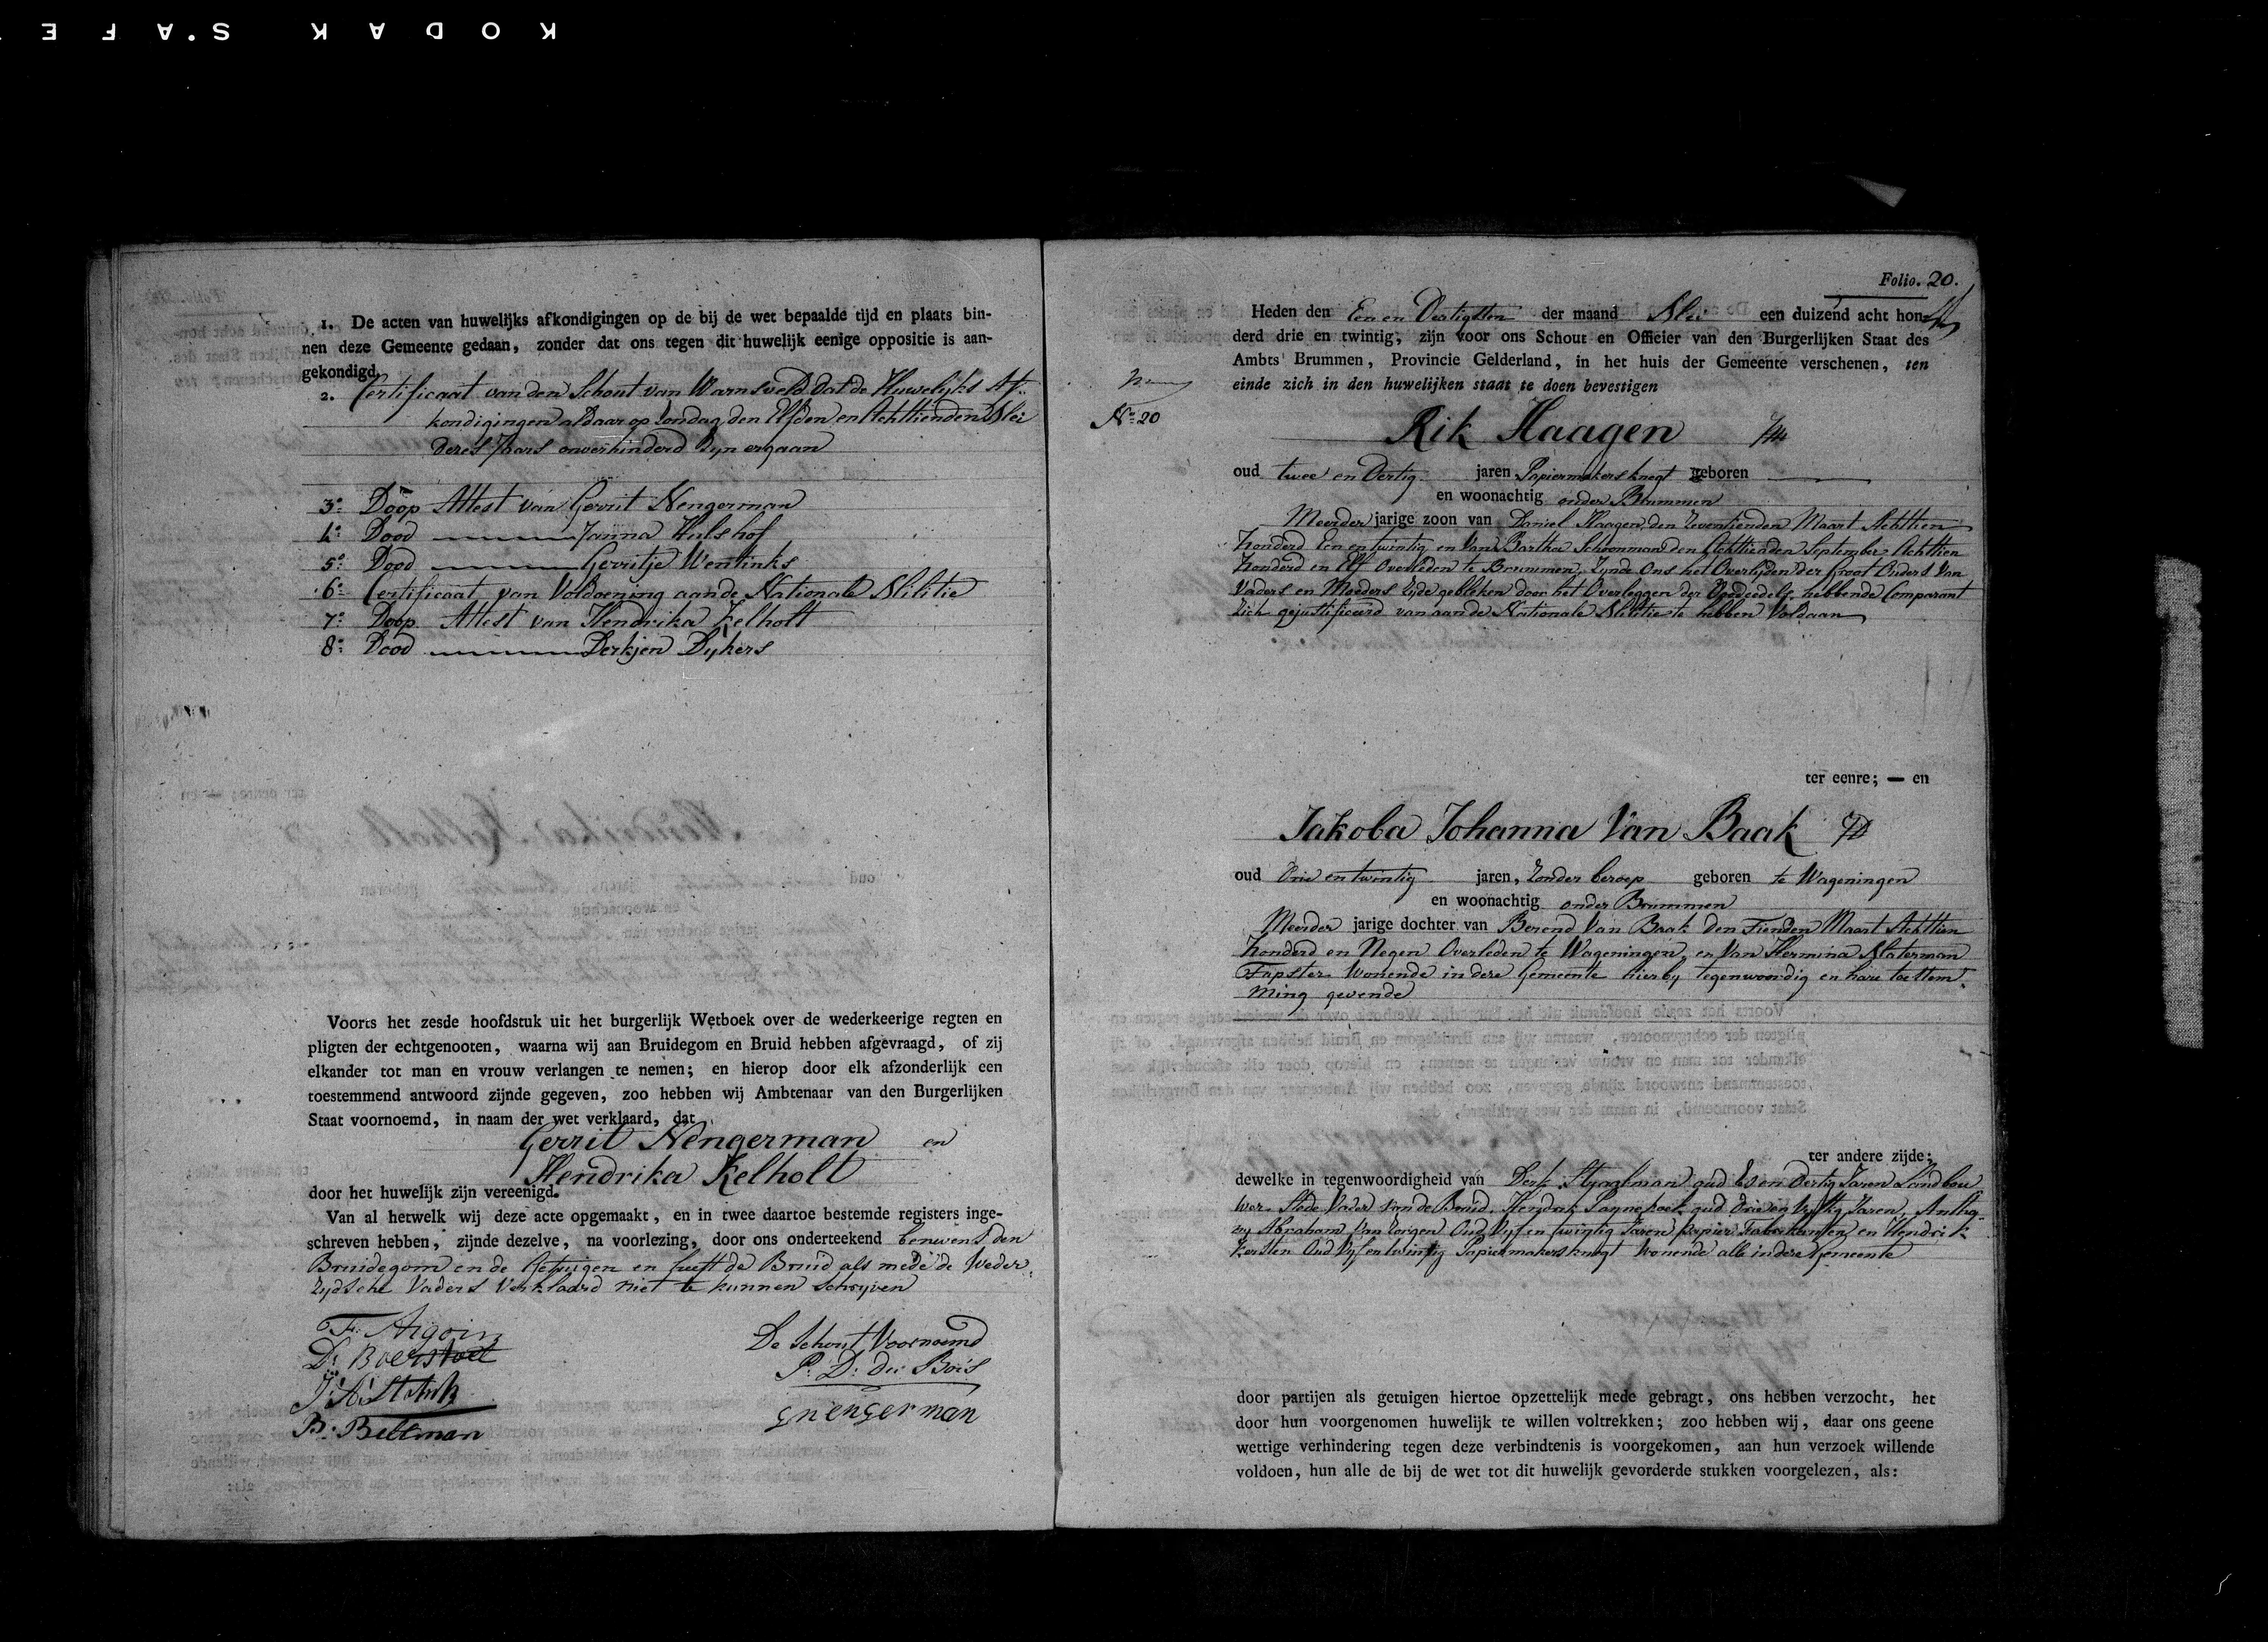 KODAK S.AFE
1. De acten van huwelijks afkondigingen op de bij de wet bepaalde tijd en plaats bin-
nen deze Gemeente gedaan, zonder dat ons tegen dit huwelijk eenige oppositie is aan-
gekondigd.
2. Certificaat van den Schout van Warnsveld dat de Huwelyks Af-
kondigingen aldaar op Zondag den Elfden en Achttienden Mei
dezes Jaars onverhinderd Zyn ergaan
3º Doop Attest van Gerrit Nengerman
4º Dood Janna Hulshof
5º Dood Gerritje Wentinks
6º Certificaat van Voldoening aan de Nationale Militie
7º Doop Attest van Hendrika Kelholt
8º Dood Derkjen Dykers
Voorts het zesde hoofdstuk uit het burgerlijk Wetboek over de wederkeerige regten en
pligten der echtgenooten, waarna wij aan Bruidegom en Bruid hebben afgevraagd, of zij
elkander tot man en vrouw verlangen te nemen; en hierop door elk afzonderlijk een
toestemmend antwoord zijnde gegeven, zoo hebben wij Ambtenaar van den Burgerlijken
Staat voornoemd, in naam der wet verklaard, dat
Gerrit Nengerman en
Hendrika Kelholt
door het huwelijk zijn vereenigd.
Van al hetwelk wij deze acte opgemaakt, en in twee daartoe bestemde registers inge-
schreven hebben, zijnde dezelve, na voorlezing, door ons onderteekend benevens den
Bruidegom en de Getuigen en heeft de Bruid als mede de Weder
zydsche Vaders Verklaard niet te kunnen Schryven
De Schout Voornoemd
P. D. du Bois
B. Beltman
gnengerman
Folio. 20.
Heden den Een en Dertigsten der maand Mei een duizend acht hon-
derd drie en twintig, zijn voor ons Schout en Officier van den Burgerlijken Staat des
Ambts Brummen, Provincie Gelderland, in het huis der Gemeente verschenen, ten
einde zich in den huwelijken staat te doen bevestigen
Nº 20
Rik Haagen
oud twee en Dertig jaren Papiermakersknegt geboren
en woonachtig onder Brummen
Meerder jarige zoon van Daniel Haagen den Zeventienden Maart Achttien
honderd Een en twintig en Van Bartha Schoonman den Achttienden September Achttien
honderd en Elf Overleden te Brummen, Zynde Ons het Overlyden der Groot Ouders Van
Vaders en Moeders Zyde gebleken door het Overleggen der Doodcedels hebbende Comparant
Zich gejustificeerd van aan de Nationale Militie te hebben Voldaan
ter eenre; — en
Jakoba Johanna Van Baak
oud Drie en twintig jaren, Zonder beroep geboren te Wageningen
en woonachtig onder Brummen
Meerder jarige dochter van Berend Van Baak den Tienden Maart Achttien
honderd en Negen Overleden te Wageningen, en Van Hermina Materman
Tapster Wonende in deze Gemeente hierby tegenwoordig en hare toestem-
ming gevende
ter andere zijde;
dewelke in tegenwoordigheid van Derk oud en Dertig Jaren Landbou
wer Stede Vader van de Bruid, Hendrik oud Drie en Vyftig Jaren, Antho
ny Abraham Van Zorgen Oud Vyf en twintig Jaren papier Fabrikeur en Hendrik
Kersten Oud Vyf en twintig Papiermakersknegt Wonende alle in deze Gemeente
door partijen als getuigen hiertoe opzettelijk mede gebragt, ons hebben verzocht, het
door hun voorgenomen huwelijk te willen voltrekken; zoo hebben wij, daar ons geene
wettige verhindering tegen deze verbindtenis is voorgekomen, aan hun verzoek willende
voldoen, hun alle de bij de wet tot dit huwelijk gevorderde stukken voorgelezen, als: